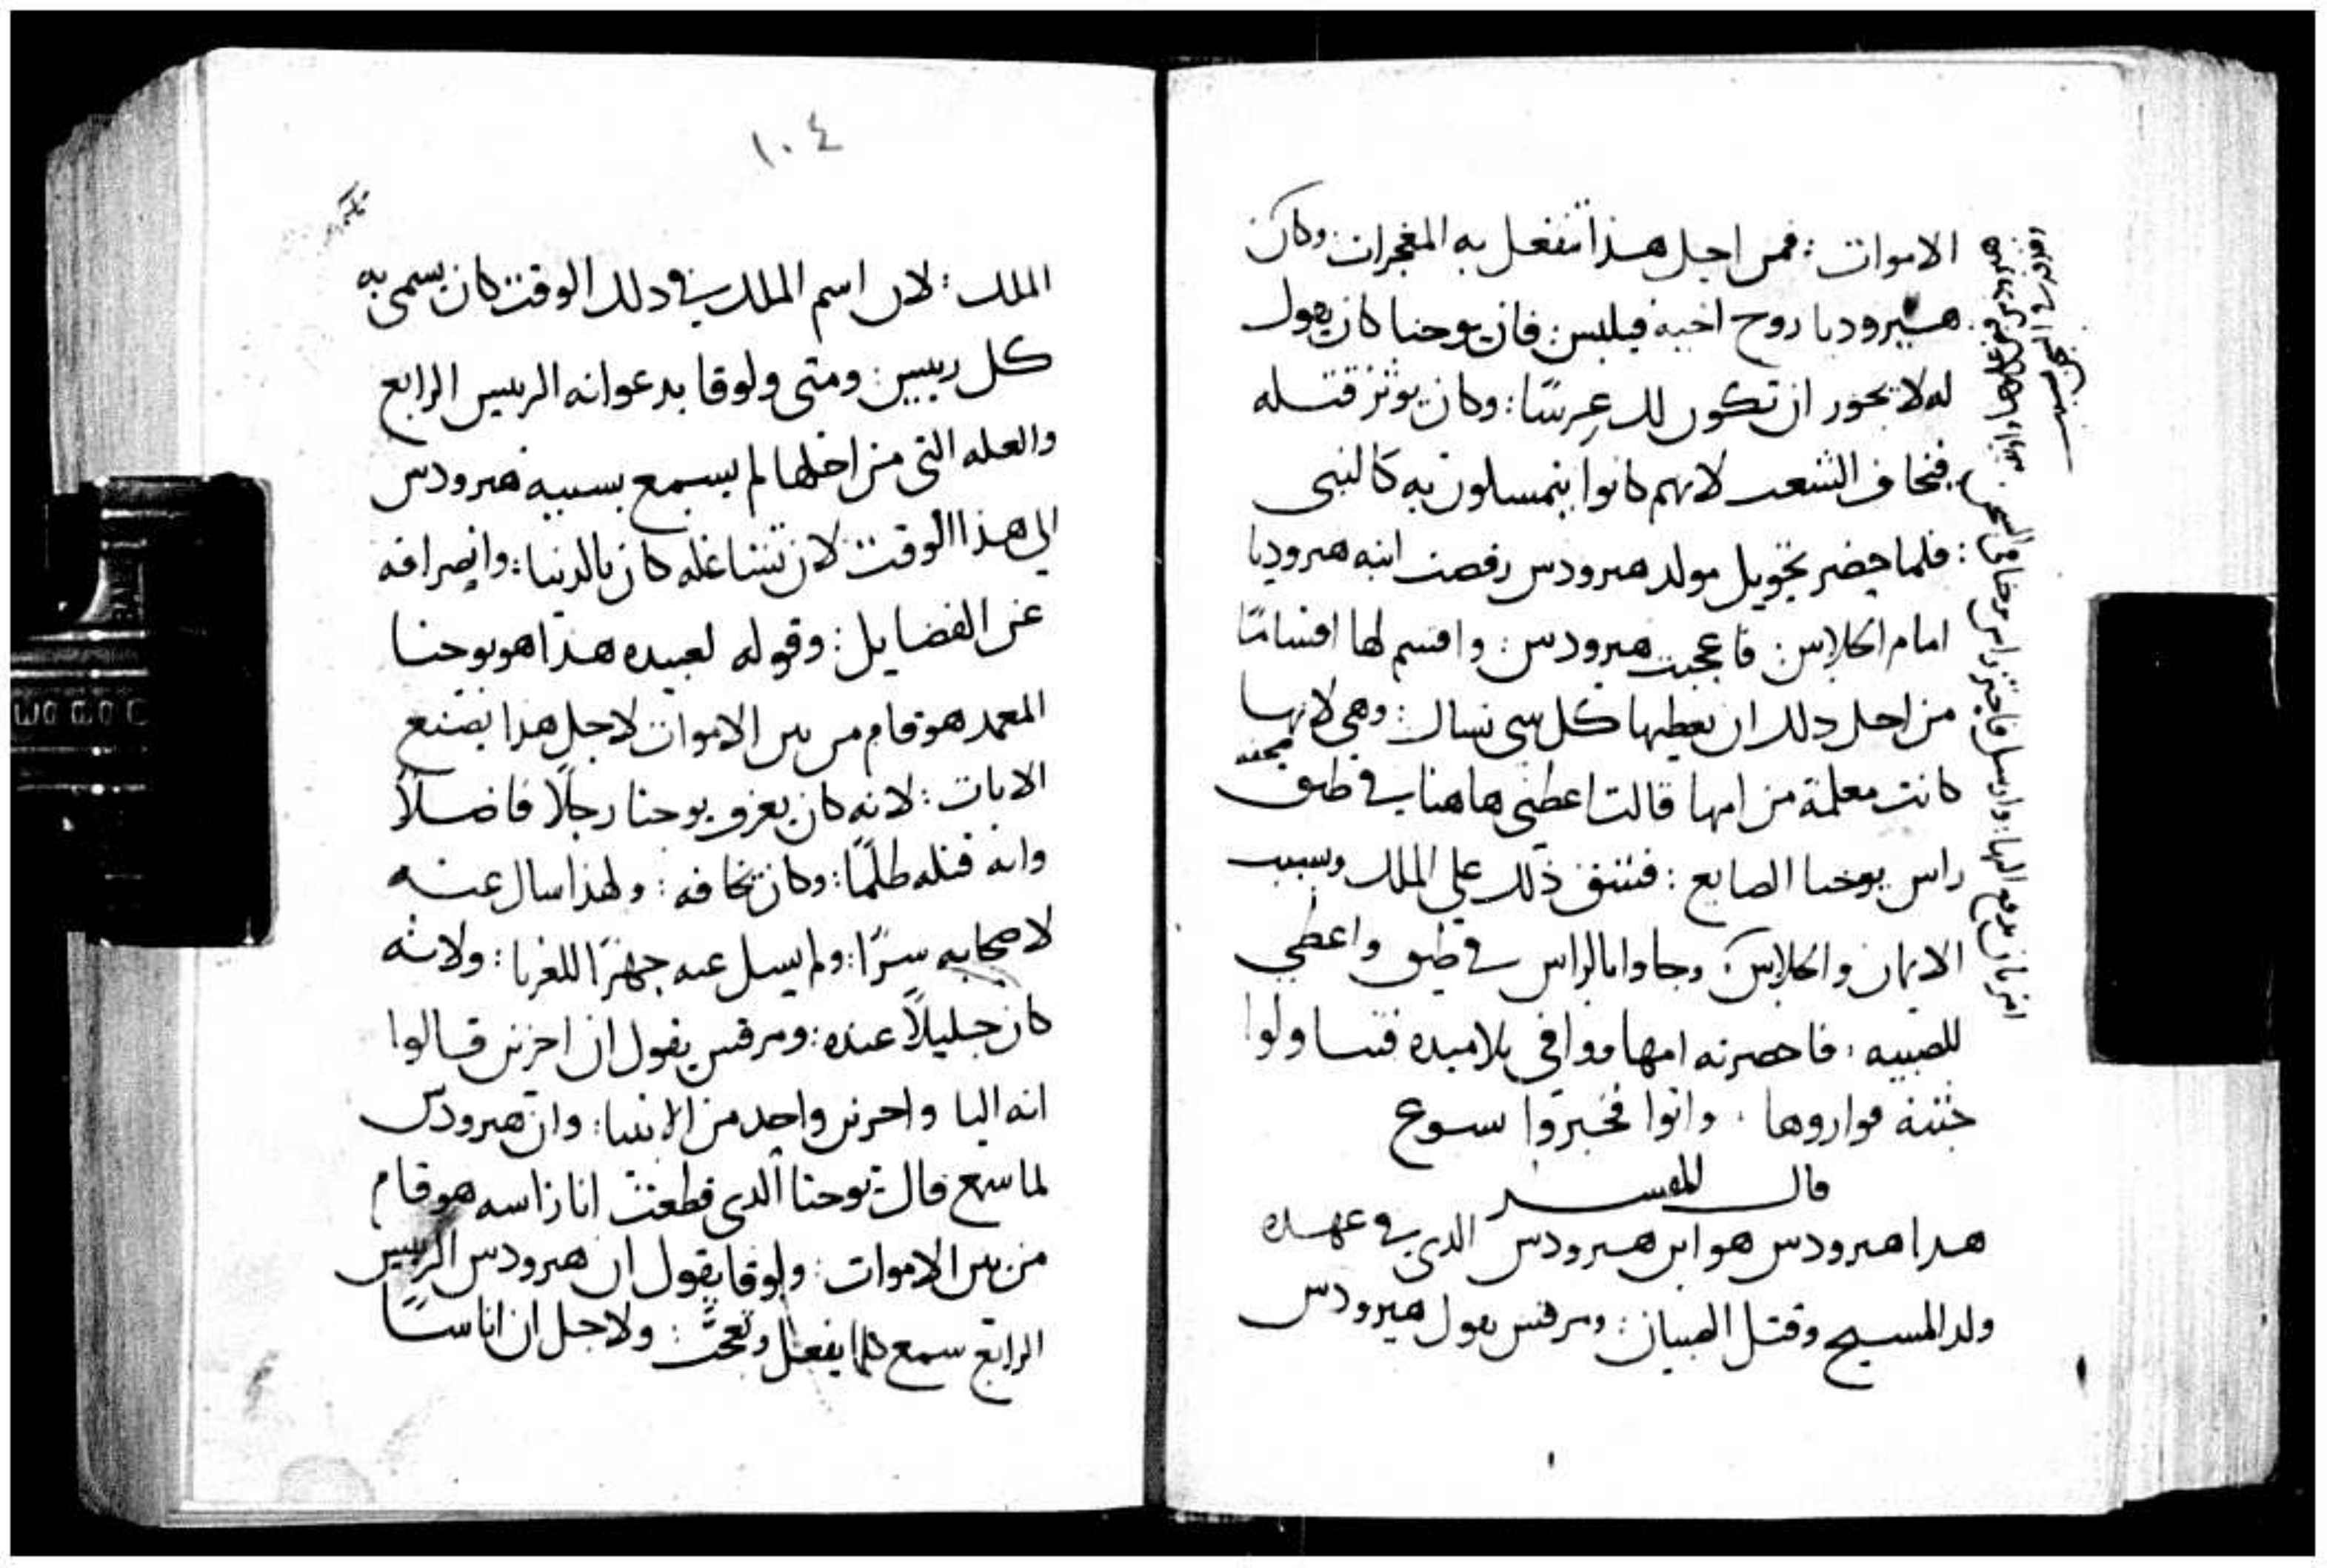 الاموات : فمن اجل هذا تنفعل به المعجزات : وكان
هيروديا زوج اخيه فيلبس : فان يوحنا كان يقول
له لا يجوز ان تكون لك عرسًا : وكان يوثر قتله
فيخاف الشعب لانهم كانوا يتمسلون به كالنبي
: فلما حضر تحويل مولد هيرودس رقصت ابنه هيروديا
امام الجلاس : فاعجبت هيرودس : واقسم لها اقسامًا
من اجل ذلك ان يعطيها كل شي تسال : وهي لانها
كانت معلمة من امها قالت اعطني هاهنا في طبق
راس يوحنا الصابغ : فشق ذلك على الملك وسبب
الايمان والجلاس : وجاوا بالراس في طبق واعطي
للصبيه : فاحضرته امها ووافي تلاميده فتناولوا
جثته فواروها . واتوا فخبروا يسوع
قال المفسر
هدا هيرودس هو ابن هيرودس الدي في عهده
ولد المسيح وقتل الصبيان : ومرقس يقول هيرودس
١٠٤
الملك : لان اسم الملك في دلك الوقت كان يسمى به
كل رييس : ومتى ولوقا يدعوانه الرييس الرابع
والعله التي من اجلها لم يسمع بسببه هيرودس
الي هذا الوقت لان تشاغله كان بالدنيا : وانصرافه
عن الفضايل : وقوله لعبيده هذا هو يوحنا
المعمد هو قام من بين الاموات لاجل هذا يصنع
الايات : لانه كان يعرف يوحنا رجلًا فاضلًا
وانه قتله ظلمًا : وكان يخافه : ولهذا سال عنه
لاصحابه سرًا : ولم يسل عنه جهرًا للغربا : ولانه
كان جليلًا عنده : ومرقس يقول ان اخرين قالوا
انه اليا واخرين واحد من الانبيا : وان هيرودس
لما سمع قال يوحنا الدي قطعت انا راسه هو قام
من بين الاموات : ولوقا يقول ان هيرودس الرييس
الرابع سمع كلما يفعل وتعجب : ولاجل ان اناسًا